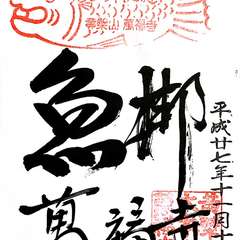 黄檗山萬福寺
魚梆
萬福寺
平成廿七年十一月十